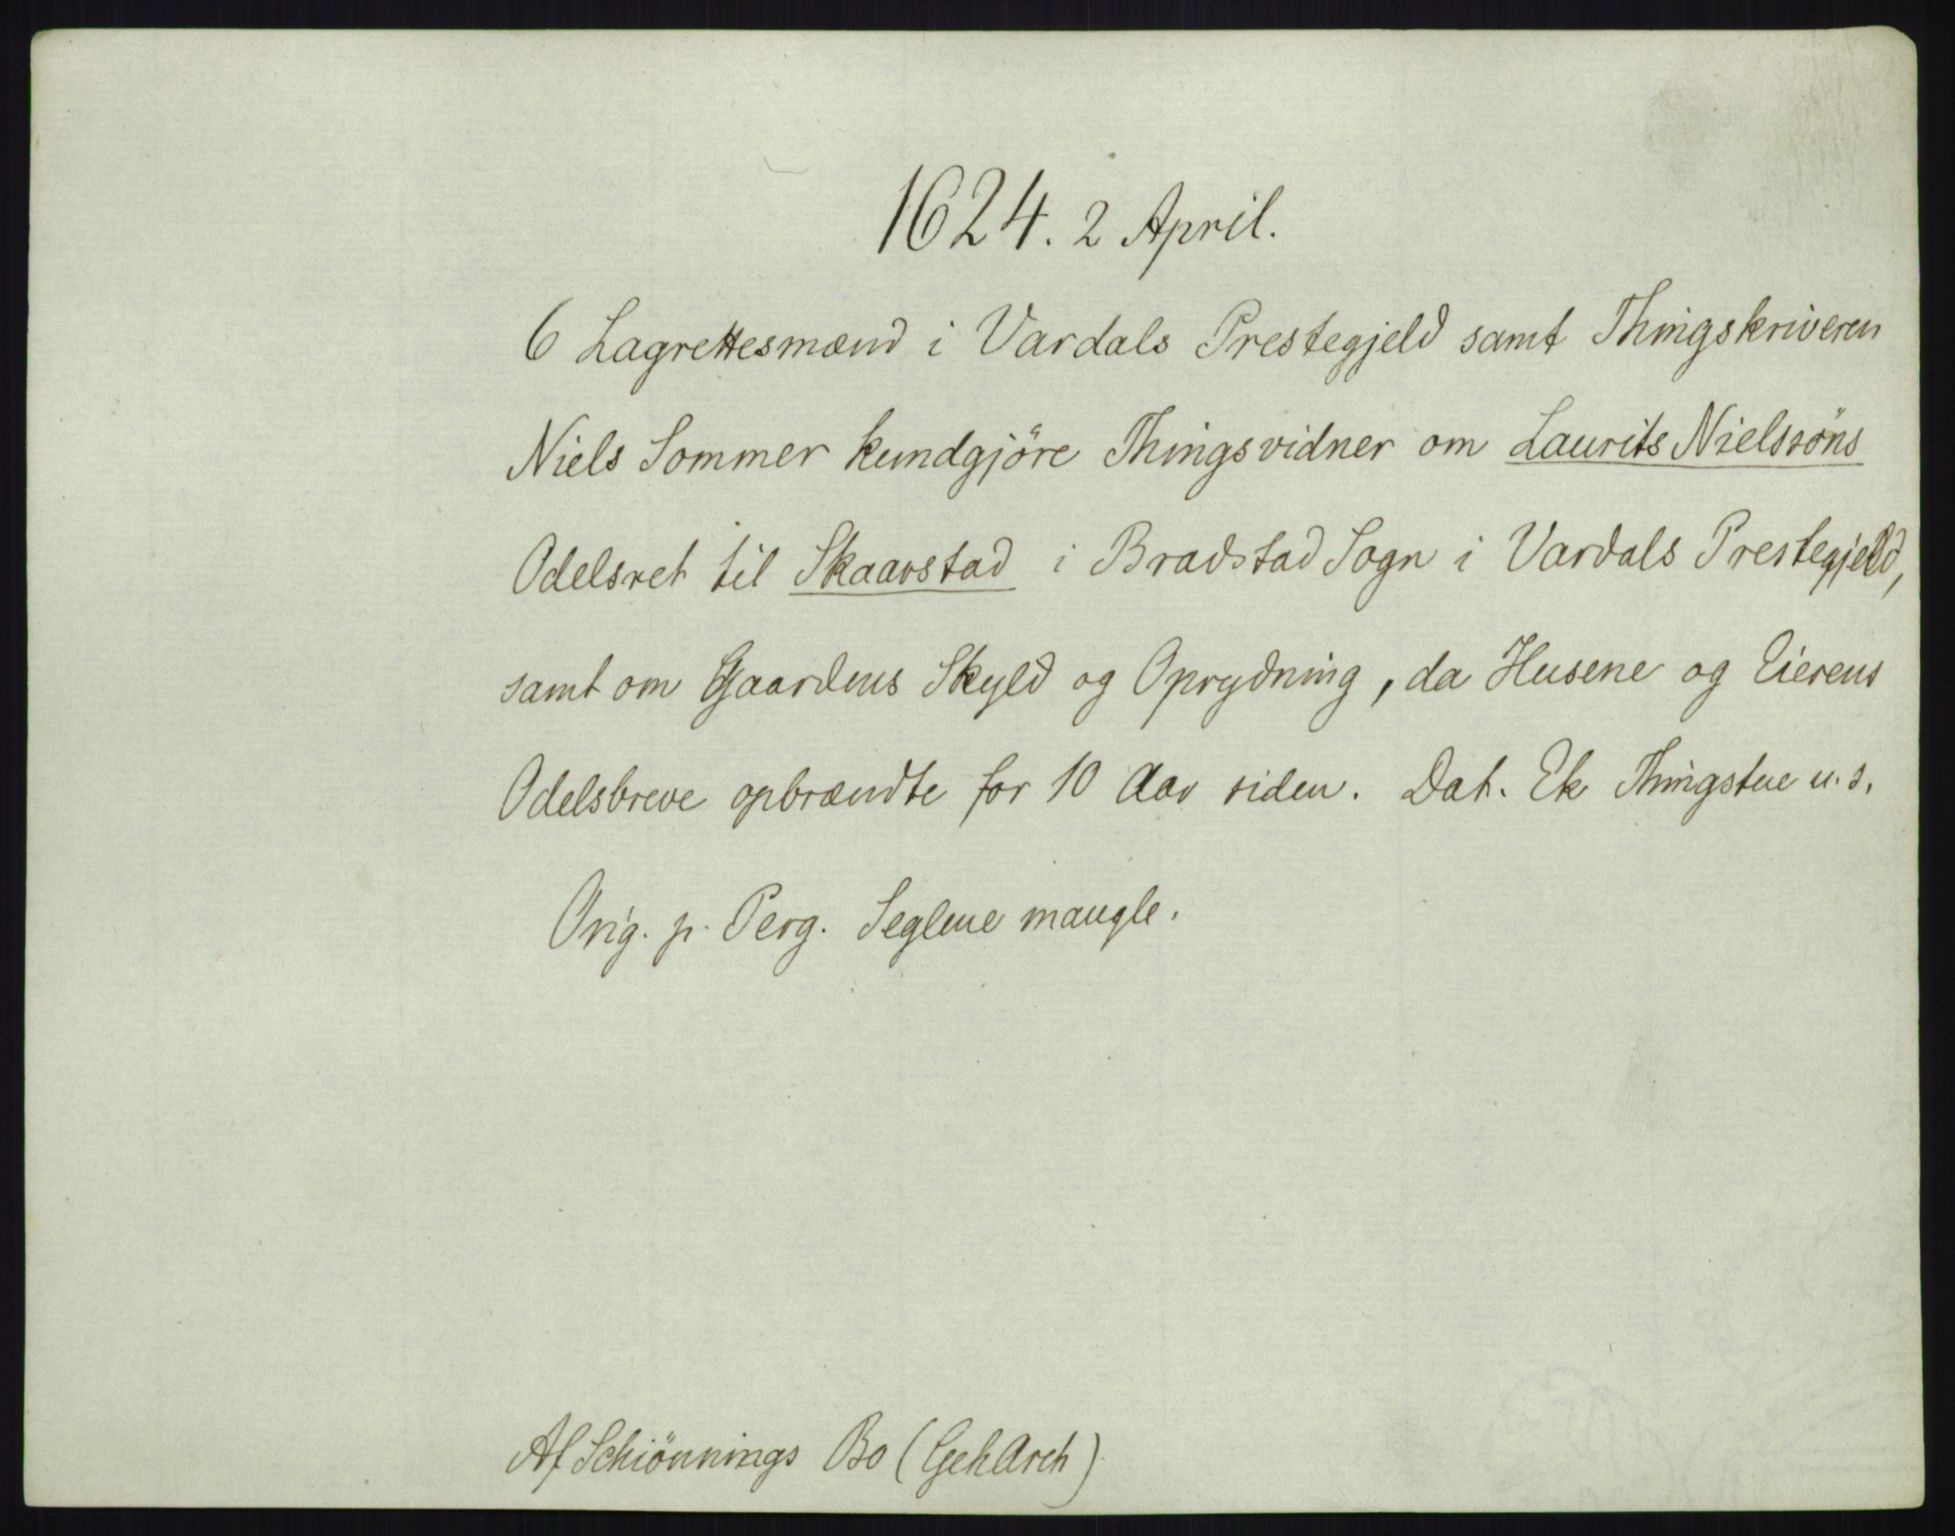 1624. 2 April.
6 Lagrettesmænd i Vardals Prestegjeld samt Thingskriveren
Niels Sommer kundgjöre Thingsvidner om Laurits Nielssöns
Odelsret til Skaarstad i Bradstad Sogn i Vardals Prestegjeld,
samt om Gaardens Skyld og Oprydning, da Husene og Eierens
Odelsbreve opbrændte for 10 Aar siden. Dat. Ek Thingstue u.s.
Orig. p. Perg. Seglene mangle.
Af Schiönnings Bo (GehArch)